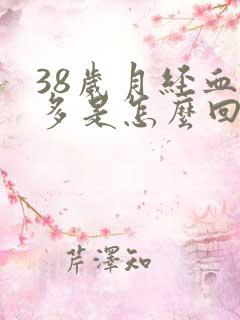 38歲月経血
多是怎麼回
芹澤知